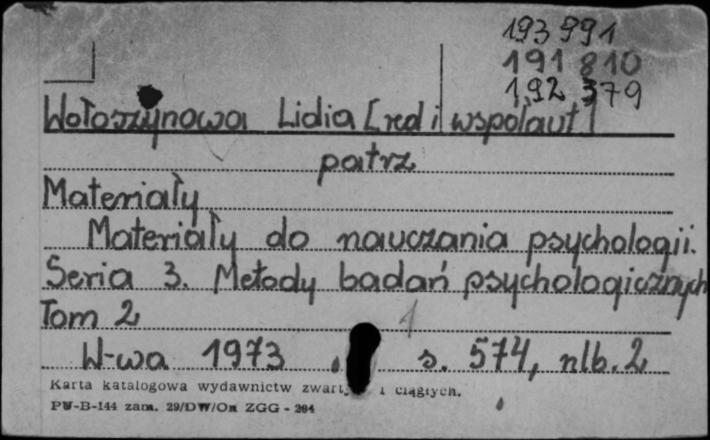 193 991
191 810
192 379
Wołoszynowa Lidia [red i współaut]
patrz
Materiały
Materiały do nauczania psychologii.
Seria 3. Metody badań psychologicznych
Tom 2
W-wa 1973 s. 574, nlb. 2
Karta katalogowa wydawnictw zwartych i ciągłych.
PW-B-144 zam. 29/DW/On ZGG - 294